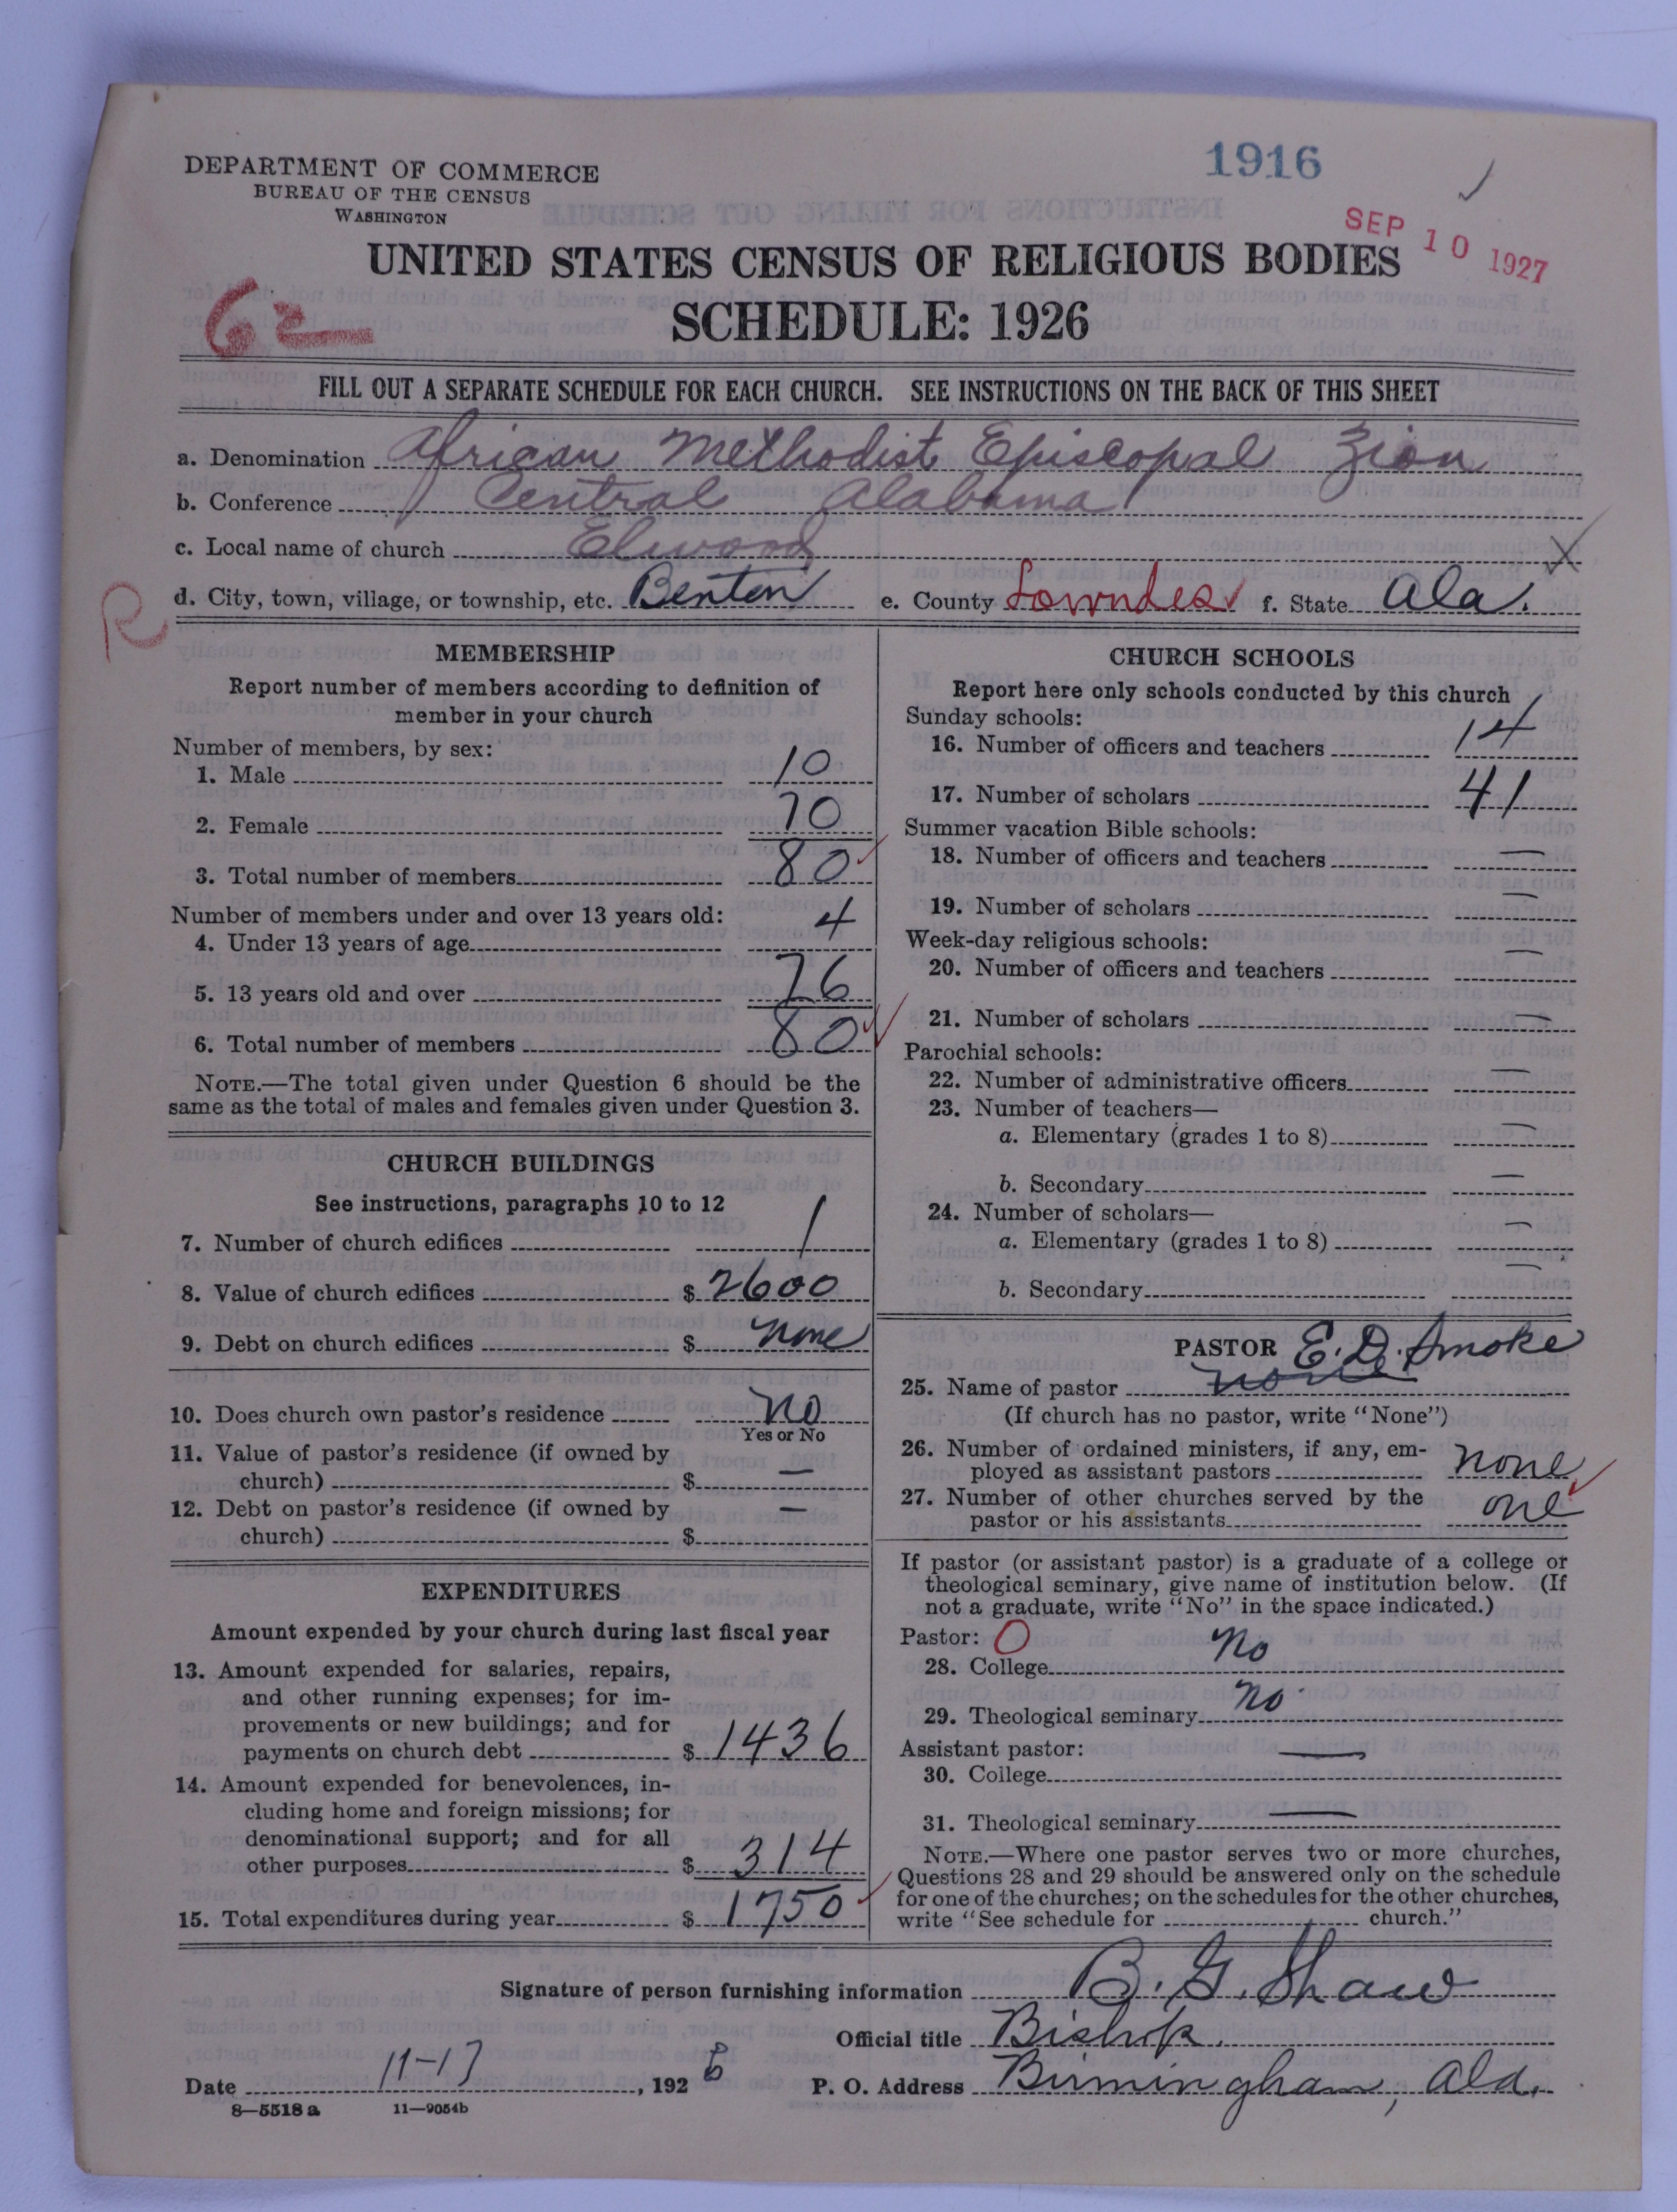 1916
DEPARTMENT OF COMMERCE
BUREAU OF THE CENSUS
WASHINGTON
SEP 10 1927
UNITED STATES CENSUS OF RELIGIOUS BODIES
SCHEDULE: 1926
62
FILL OUT A SEPARATE SCHEDULE FOR EACH CHURCH. SEE INSTRUCTIONS ON THE BACK OF THIS SHEET
a. Denomination African Methodist Episcopal Zion
b. Conference Central Alabama
c. Local name of church Elwood
d. City, town, village, or township, etc. Benton e. County Lowndes f. State Ala.
R
MEMBERSHIP
Report number of members according to definition of
member in your church
Number of members, by sex:
1. Male 10
2. Female 70
3. Total number of members 80
Number of members under and over 13 years old:
4. Under 13 years of age 4
5. 13 years old and over 76
6. Total number of members 80
NOTE.—The total given under Question 6 should be the
same as the total of males and females given under Question 3.
CHURCH BUILDINGS
See instructions, paragraphs 10 to 12
7. Number of church edifices 1
8. Value of church edifices $ 2600
9. Debt on church edifices $ none
10. Does church own pastor's residence no
Yes or No
11. Value of pastor's residence (if owned by
church) $ —
12. Debt on pastor's residence (if owned by
church) $ —
EXPENDITURES
Amount expended by your church during last fiscal year
13. Amount expended for salaries, repairs,
and other running expenses; for im-
provements or new buildings; and for
payments on church debt $ 1436
14. Amount expended for benevolences, in-
cluding home and foreign missions; for
denominational support; and for all
other purposes $ 314
15. Total expenditures during year $ 1750
CHURCH SCHOOLS
Report here only schools conducted by this church
Sunday schools:
16. Number of officers and teachers 14
17. Number of scholars 41
Summer vacation Bible schools:
18. Number of officers and teachers —
19. Number of scholars —
Week-day religious schools:
20. Number of officers and teachers —
21. Number of scholars —
Parochial schools:
22. Number of administrative officers —
23. Number of teachers—
a. Elementary (grades 1 to 8) —
b. Secondary —
24. Number of scholars—
a. Elementary (grades 1 to 8) —
b. Secondary —
PASTOR E. D. Smoke
25. Name of pastor none
(If church has no pastor, write "None")
26. Number of ordained ministers, if any, em-
ployed as assistant pastors none
27. Number of other churches served by the
pastor or his assistants one
If pastor (or assistant pastor) is a graduate of a college or
theological seminary, give name of institution below. (If
not a graduate, write "No" in the space indicated.)
Pastor: O
28. College no
29. Theological seminary no
Assistant pastor:
30. College —
31. Theological seminary —
NOTE.—Where one pastor serves two or more churches,
Questions 28 and 29 should be answered only on the schedule
for one of the churches; on the schedules for the other churches,
write "See schedule for church."
Signature of person furnishing information B. G. Shaw
Official title Bishop.
Date 11-17, 1926 P. O. Address Birmingham, Ala.
8—5518 a 11—9054b